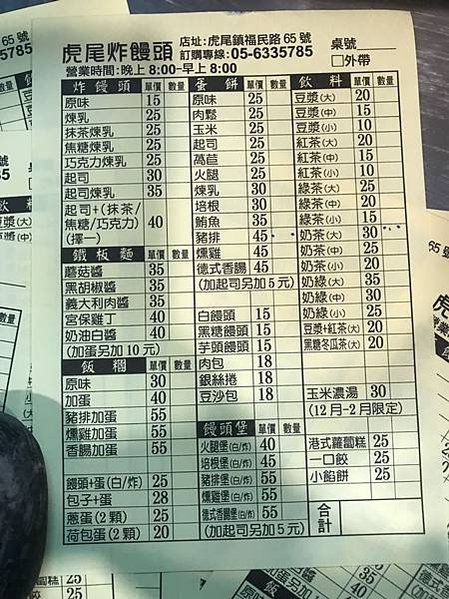 虎尾炸饅頭 店址:虎尾鎮福民路65號 桌號
訂購專線:05-6335785 □外帶
營業時間:晚上8:00-早上8:00
炸饅頭 單價 數量
原味 15
煉乳 25
抹茶煉乳 25
焦糖煉乳 25
巧克力煉乳 25
起司 30
起司煉乳 35
起司+(抹茶/
焦糖/巧克力) 40
(擇一)
鐵板麵 單價 數量
蘑菇醬 35
黑胡椒醬 35
義大利肉醬 35
宮保雞丁 40
奶油白醬 40
(加蛋另加10元)
飯糰 單價 數量
原味 30
加蛋 40
豬排加蛋 55
燻雞加蛋 55
香腸加蛋 55
饅頭+蛋(白/炸) 25
包子+蛋 28
蔥蛋(2顆) 25
荷包蛋(2顆) 20
蛋餅 單價 數量
原味 25
肉鬆 25
玉米 25
起司 25
萵苣 25
火腿 25
煉乳 30
培根 30
鮪魚 35
豬排 45
燻雞 45
德式香腸 45
(加起司另加5元)
白饅頭 15
黑糖饅頭 15
芋頭饅頭 15
肉包 18
銀絲捲 18
豆沙包 18
饅頭堡 單價 數量
火腿堡(白/炸) 40
培根堡(白/炸) 45
豬排堡(白/炸) 55
燻雞堡(白/炸) 55
德式香腸堡(白/炸) 55
(加起司另加5元)
飲料 單價 數量
豆漿(大) 20
豆漿(中) 15
豆漿(小) 10
紅茶(大) 20
紅茶(中) 15
紅茶(小) 10
綠茶(大) 25
綠茶(中) 20
綠茶(小) 15
奶茶(大) 30
奶茶(中) 25
奶茶(小) 20
奶綠(大) 35
奶綠(中) 30
奶綠(小) 25
豆漿+紅茶(大) 20
黑糖冬瓜茶(大) 20
玉米濃湯 30
(12月-2月限定)
港式蘿蔔糕 25
一口餃 25
小餡餅 25
合計